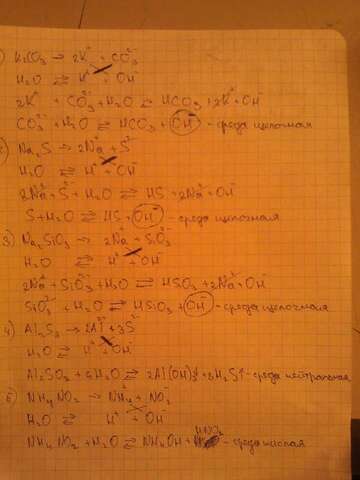 1) K₂CO₃ → 2K⁺ + CO₃²⁻
H₂O ⇄ H⁺ + OH⁻
2K⁺ + CO₃²⁻ + H₂O ⇄ HCO₃⁻ + 2K⁺ + OH⁻
CO₃²⁻ + H₂O ⇄ HCO₃⁻ + OH⁻ - среда щелочная
2) Na₂S → 2Na⁺ + S²⁻
H₂O ⇄ H⁺ + OH⁻
2Na⁺ + S²⁻ + H₂O ⇄ HS⁻ + 2Na⁺ + OH⁻
S + H₂O ⇄ HS + OH⁻ - среда щелочная
3) Na₂SiO₃ → 2Na⁺ + SiO₃²⁻
H₂O ⇄ H⁺ + OH⁻
2Na⁺ + SiO₃²⁻ + H₂O ⇄ HSiO₃ + 2Na⁺ + OH⁻
SiO₃²⁻ + H₂O ⇄ HSiO₃ + OH⁻ - среда щелочная
4) Al₂S₃ → 2Al³⁺ + 3S²⁻
H₂O ⇄ H⁺ + OH⁻
Al₂SO₃ + 6H₂O ⇄ 2Al(OH)₃↓ + 3H₂S↑ - среда нейтральная
5) NH₄NO₂ → NH₄⁺ + NO₂⁻
H₂O ⇄ H⁺ + OH⁻
NH₄NO₂ + H₂O ⇄ NH₄OH + HNO₂ - среда кислая